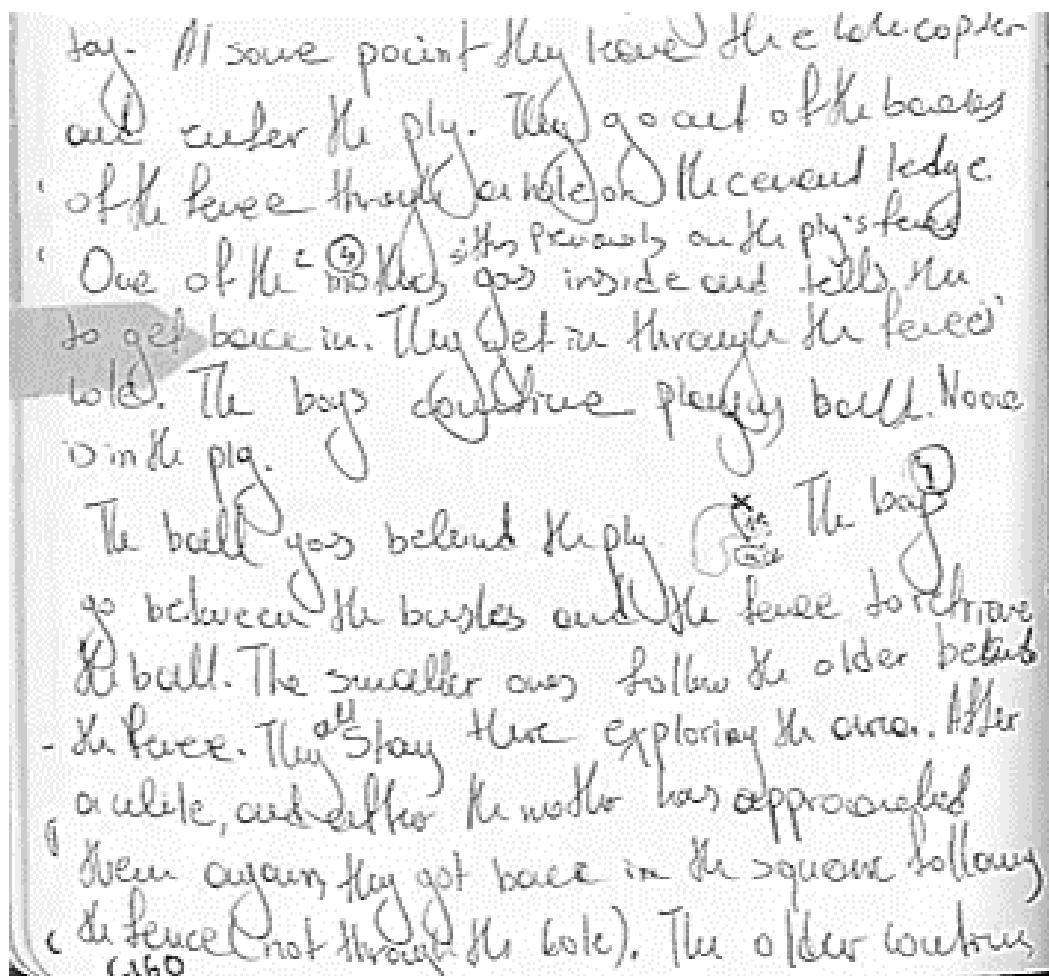 toy. At some point they leave the helicopter
and enter the plg. They go out of the backs
of the fence through a hole on the cement ledge.
sitting previously on the plg's fence
One of the 4 mothers goes inside and tells them
to get back in. They get in through the fences'
hole. The boys continue playing ball. Noone
is in the plg.
The ball goes behind the plg. The boys 7
go between the bushes and the fence to retrieve
the ball. The smaller ones follow the older behind
the fence. They all stay there exploring the area. After
a while, and after the mother has approached
them again, they got back in the square following
the fence (not through the hole). The older continue